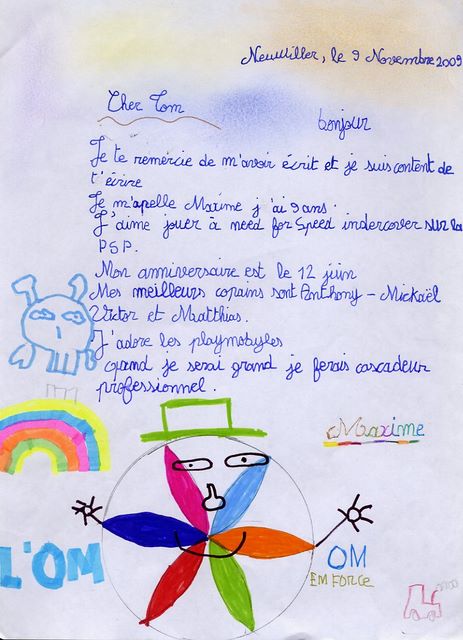 Neuwiller, le 9 Novembre 2009
Cher Tom
bonjour
Je te remercie de m'avoir écrit et je suis content de
t'écrire
Je m'apelle Maxime j'ai 9 ans.
J'aime jouer à need for Speed undercover sur la
PSP.
Mon anniversaire est le 12 juin
Mes meilleurs copains sont Anthony - Mickaël
Victor et Matthias.
J'adore les playmobyles
quand je serai grand je ferais cascadeur
professionnel.
Maxime
L'OM
OM
EM FORCE